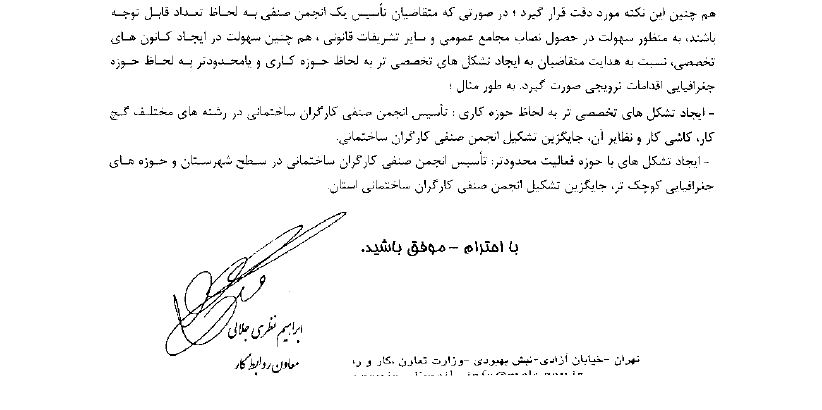 هم چنین این نکته مورد دقت قرار گیرد ؛ در صورتی که متقاضیان تأسیس یک انجمن صنفی به لحاظ تعداد قابل توجه
باشند، به منظور سهولت در حصول نصاب مجامع عمومی و سایر تشریفات قانونی ، هم چنین سهولت در ایجاد کانون های
تخصصی، نسبت به هدایت متقاضیان به ایجاد تشکل های تخصصی تر به لحاظ حوزه کاری و یامحدودتر به لحاظ حوزه
جغرافیایی اقدامات ترویجی صورت گیرد. به طور مثال ؛
- ایجاد تشکل های تخصصی تر به لحاظ حوزه کاری : تأسیس انجمن صنفی کارگران ساختمانی در رشته های مختلف گچ
کار، کاشی کار و نظایر آن، جایگزین تشکیل انجمن صنفی کارگران ساختمانی.
- ایجاد تشکل های با حوزه فعالیت محدودتر: تأسیس انجمن صنفی کارگران ساختمانی در سطح شهرستان و حوزه های
جغرافیایی کوچک تر، جایگزین تشکیل انجمن صنفی کارگران ساختمانی استان.
با احترام – موفق باشید.
ابراهیم نظری جلالی
معاون روابط کار
تهران -خیابان آزادی-نبش بهبودی -وزارت تعاون ،کار و ر